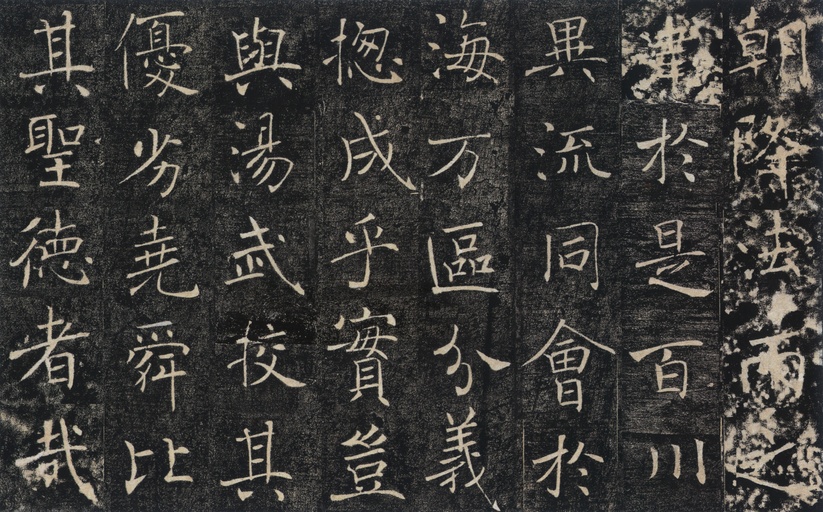 朝降法雨之
於是百川
異流同會於
海万區分義
揔成乎實豈
與湯武挍其
優劣堯舜比
其聖德者哉